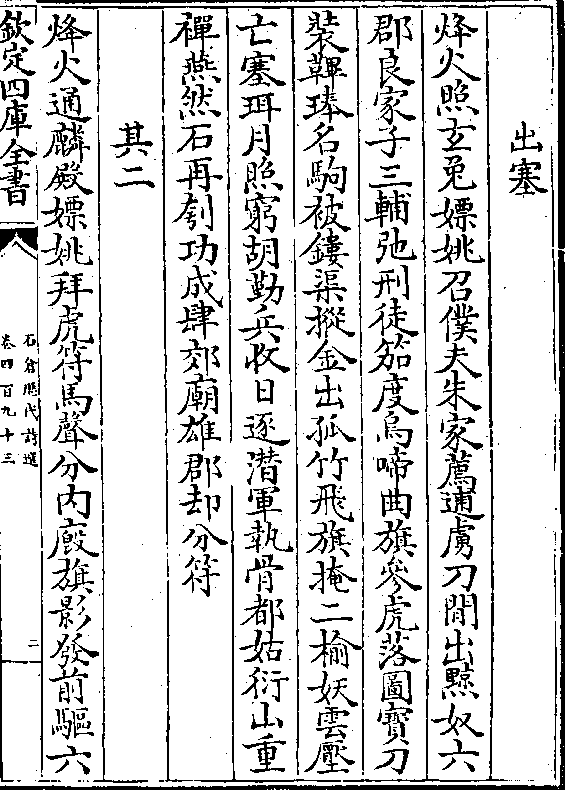 出塞
烽火照玄兎嫖姚召僕夫朱家薦逋虜刀閒出黥奴六
郡良家子三輔弛刑徒笳度烏啼曲旗參虎落圖寶刀
裝鞞琫名駒被鏤渠摐金出孤竹飛旗掩二榆妖雲壓
亡塞珥月照窮胡勤兵收日逐潛軍執骨都姑衍山重
禪燕然石再刳功成肆郊廟雄郡却分符
其二
烽火通麟殿嫖姚拜虎符馬聲分内廐旗影發前驅六
欽定四庫全書
石倉歷代詩選
卷四百九十三
二